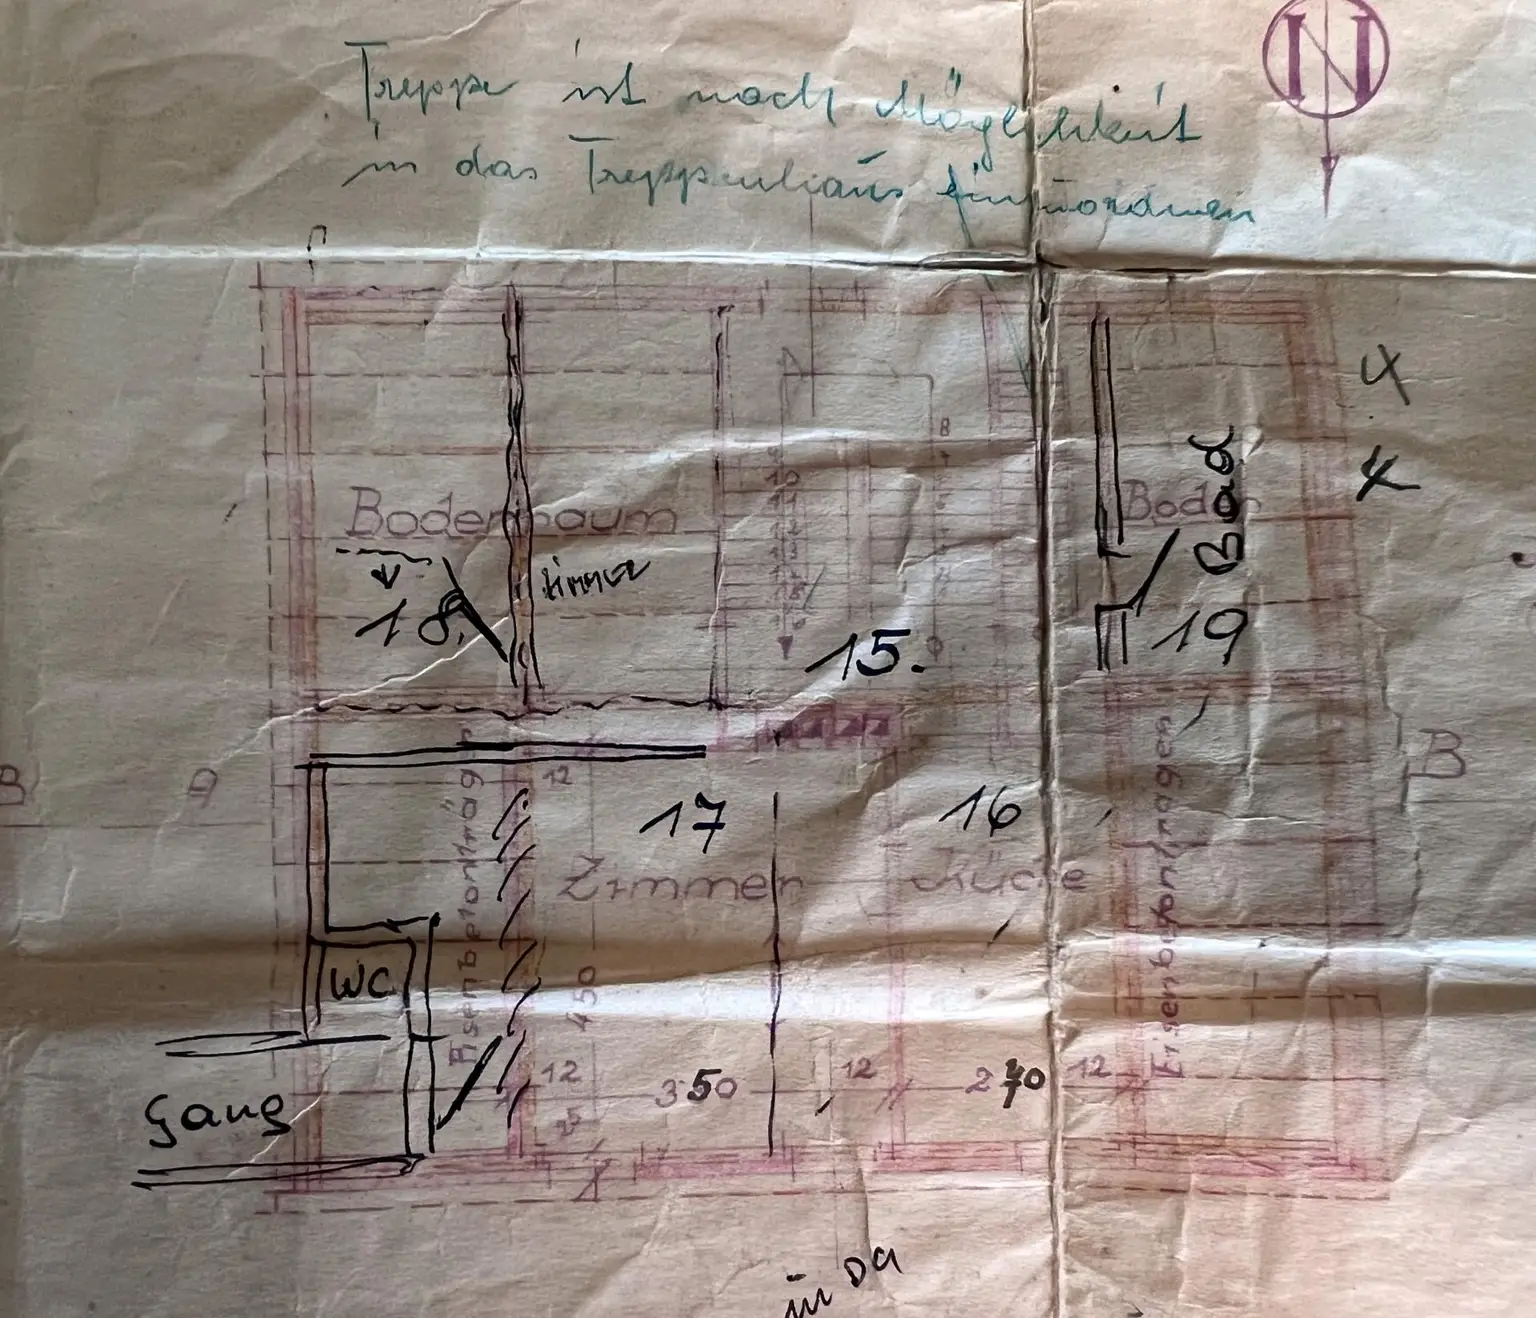 N
Treppe ist nach Möglichkeit
in das Treppenhaus einzuordnen
4
8
4
Bodenraum
Boden
Bad
zimmer
18.
15.
19
B
12
17
16
Zimmer
Küche
Eisenbetonträger
WC
450
12
350
12
12
Gang
in DA